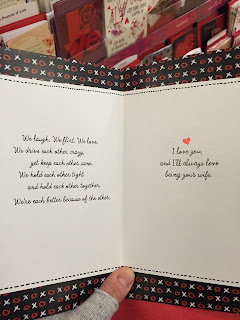 We laugh. We flirt. We love.
We drive each other crazy,
yet keep each other sane.
We hold each other tight
and hold each other together.
We're each better because of the other.
I love you,
and I'll always love
being your wife.